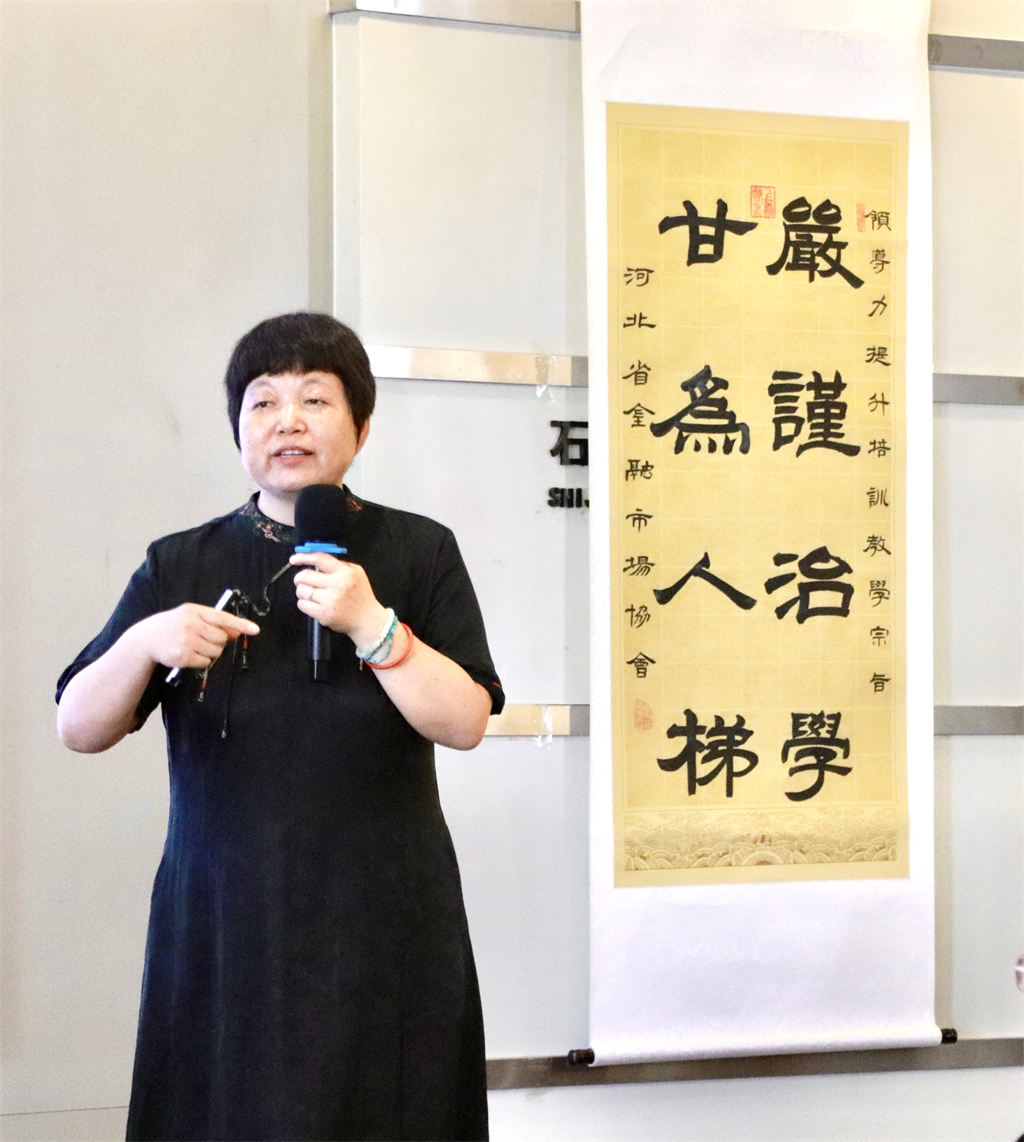 領導力提升培訓教學宗旨
嚴謹治學
甘為人梯
河北省金融市場協會
石
SHIJ